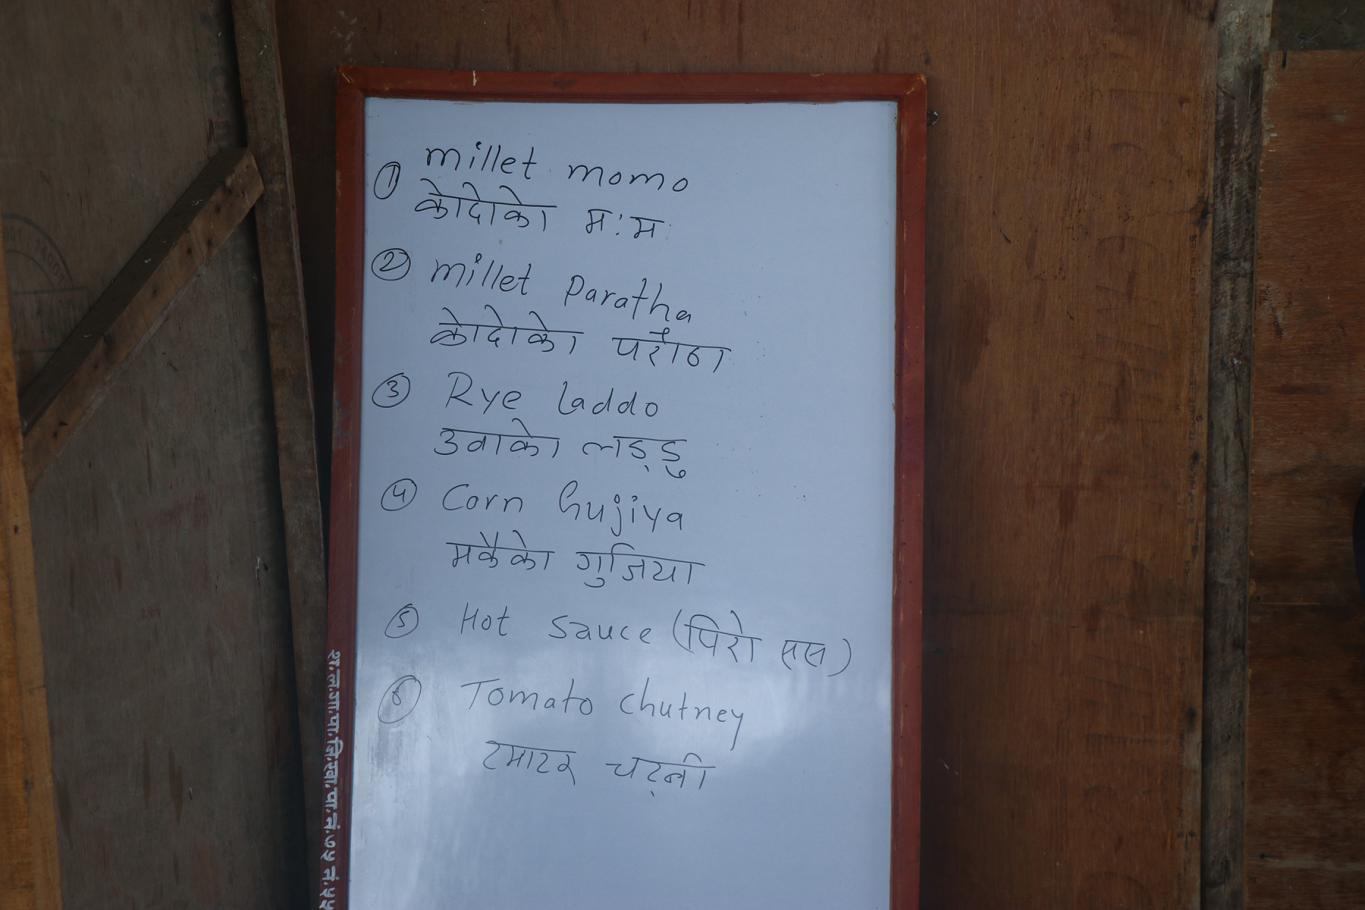 ① millet momo
कोदोको म:म
② millet Paratha
कोदोको परौठा
③ Rye laddo
उवाको लड्डु
④ Corn Gujiya
मकैको गुजिया
⑤ Hot sauce (पिरो सस)
⑥ Tomato chutney
टमाटर चट्नी